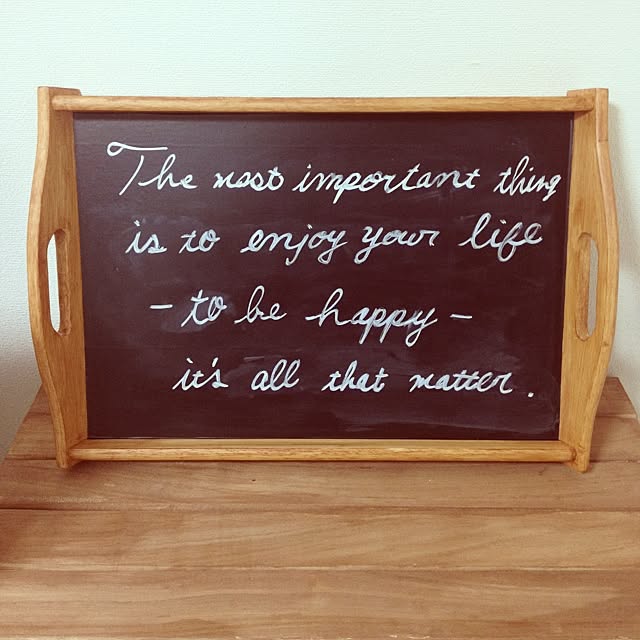 The most important thing
is to enjoy your life
- to be happy -
it's all that matter.